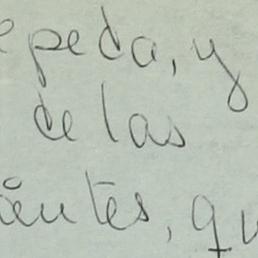 epeda, y
de las
antes, qu